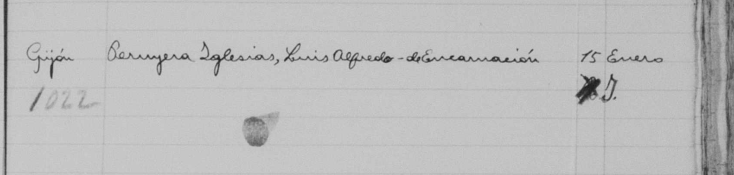 Gijón Peruyera Iglesias, Luis Alfredo - de Encarnación 15 Enero
1022 J.